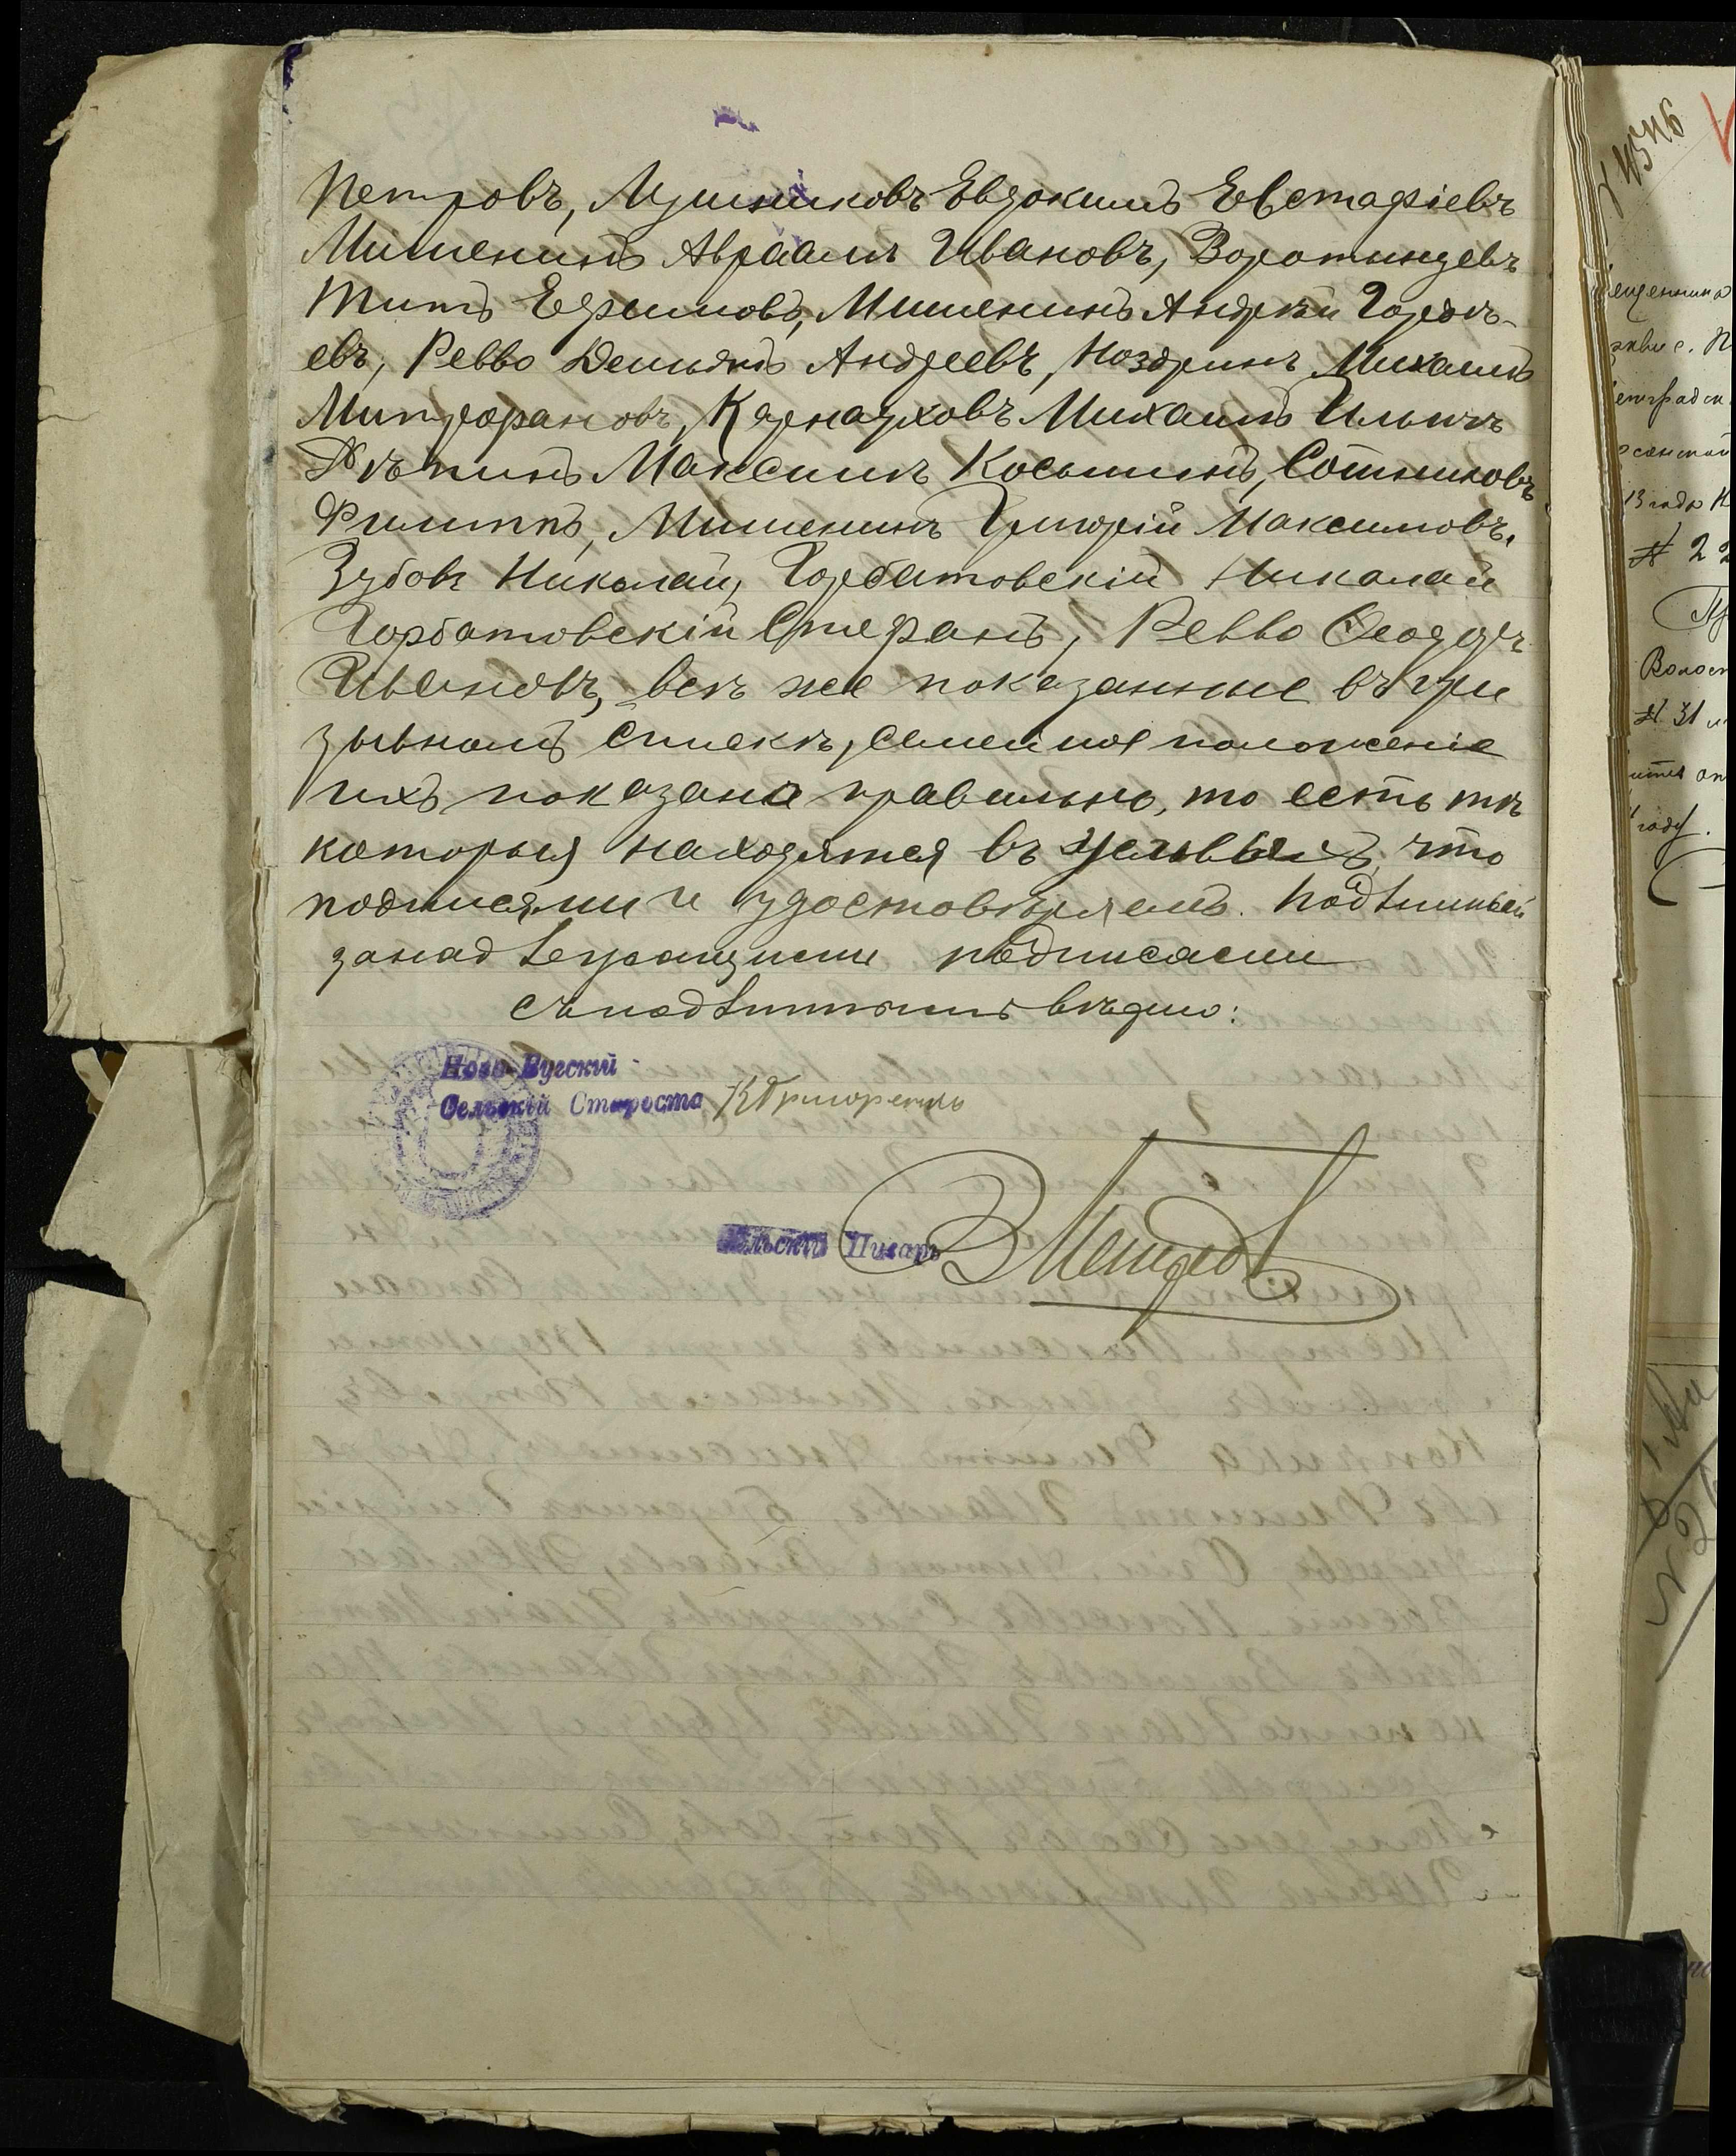 Петровъ, Мушниковъ Евдокимъ Евстафіевъ
Мишенинъ Авраамъ Ивановъ, Воротынцевъ
Титъ Ефимовъ, Мишенинъ Андрей Гордѣ-
евъ, Ревво Демьянъ Андреевъ, Ноздринъ Михаилъ
Митрофановъ, Карнауховъ Михаилъ Ильичъ
Максимъ Косьминъ, Сотниковъ
Филиппъ, Мишенинъ Григорій Максимовъ,
Зубовъ Николай, Горбатовскій Николай
Горбатовскій Стефанъ, Ревво Феодоръ
Ивановъ, всѣ же показанные въ при
зывномъ спискѣ, семейное положеніе
ихъ показано правильно, то есть тѣ
которыя находятся въ что
подписями и удостовѣряемъ. Подлинный
за надлежащими подписами
съ подлиннымъ вѣрно:
Ново-Бугскій
Сельскій Староста К Григоренко
Сельскій Писарь
№ 22
Волост
№ 31
году.